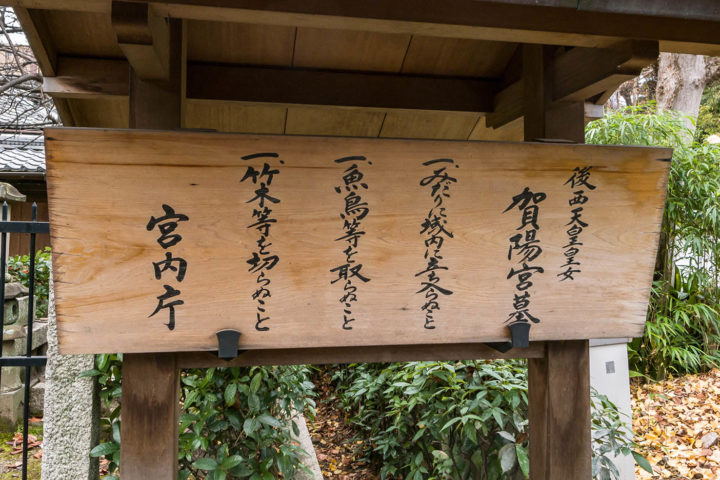 後西天皇皇女
賀陽宮墓
一、みだりに域内に立入らぬこと
一、魚鳥等を取らぬこと
一、竹木等を切らぬこと
宮内庁